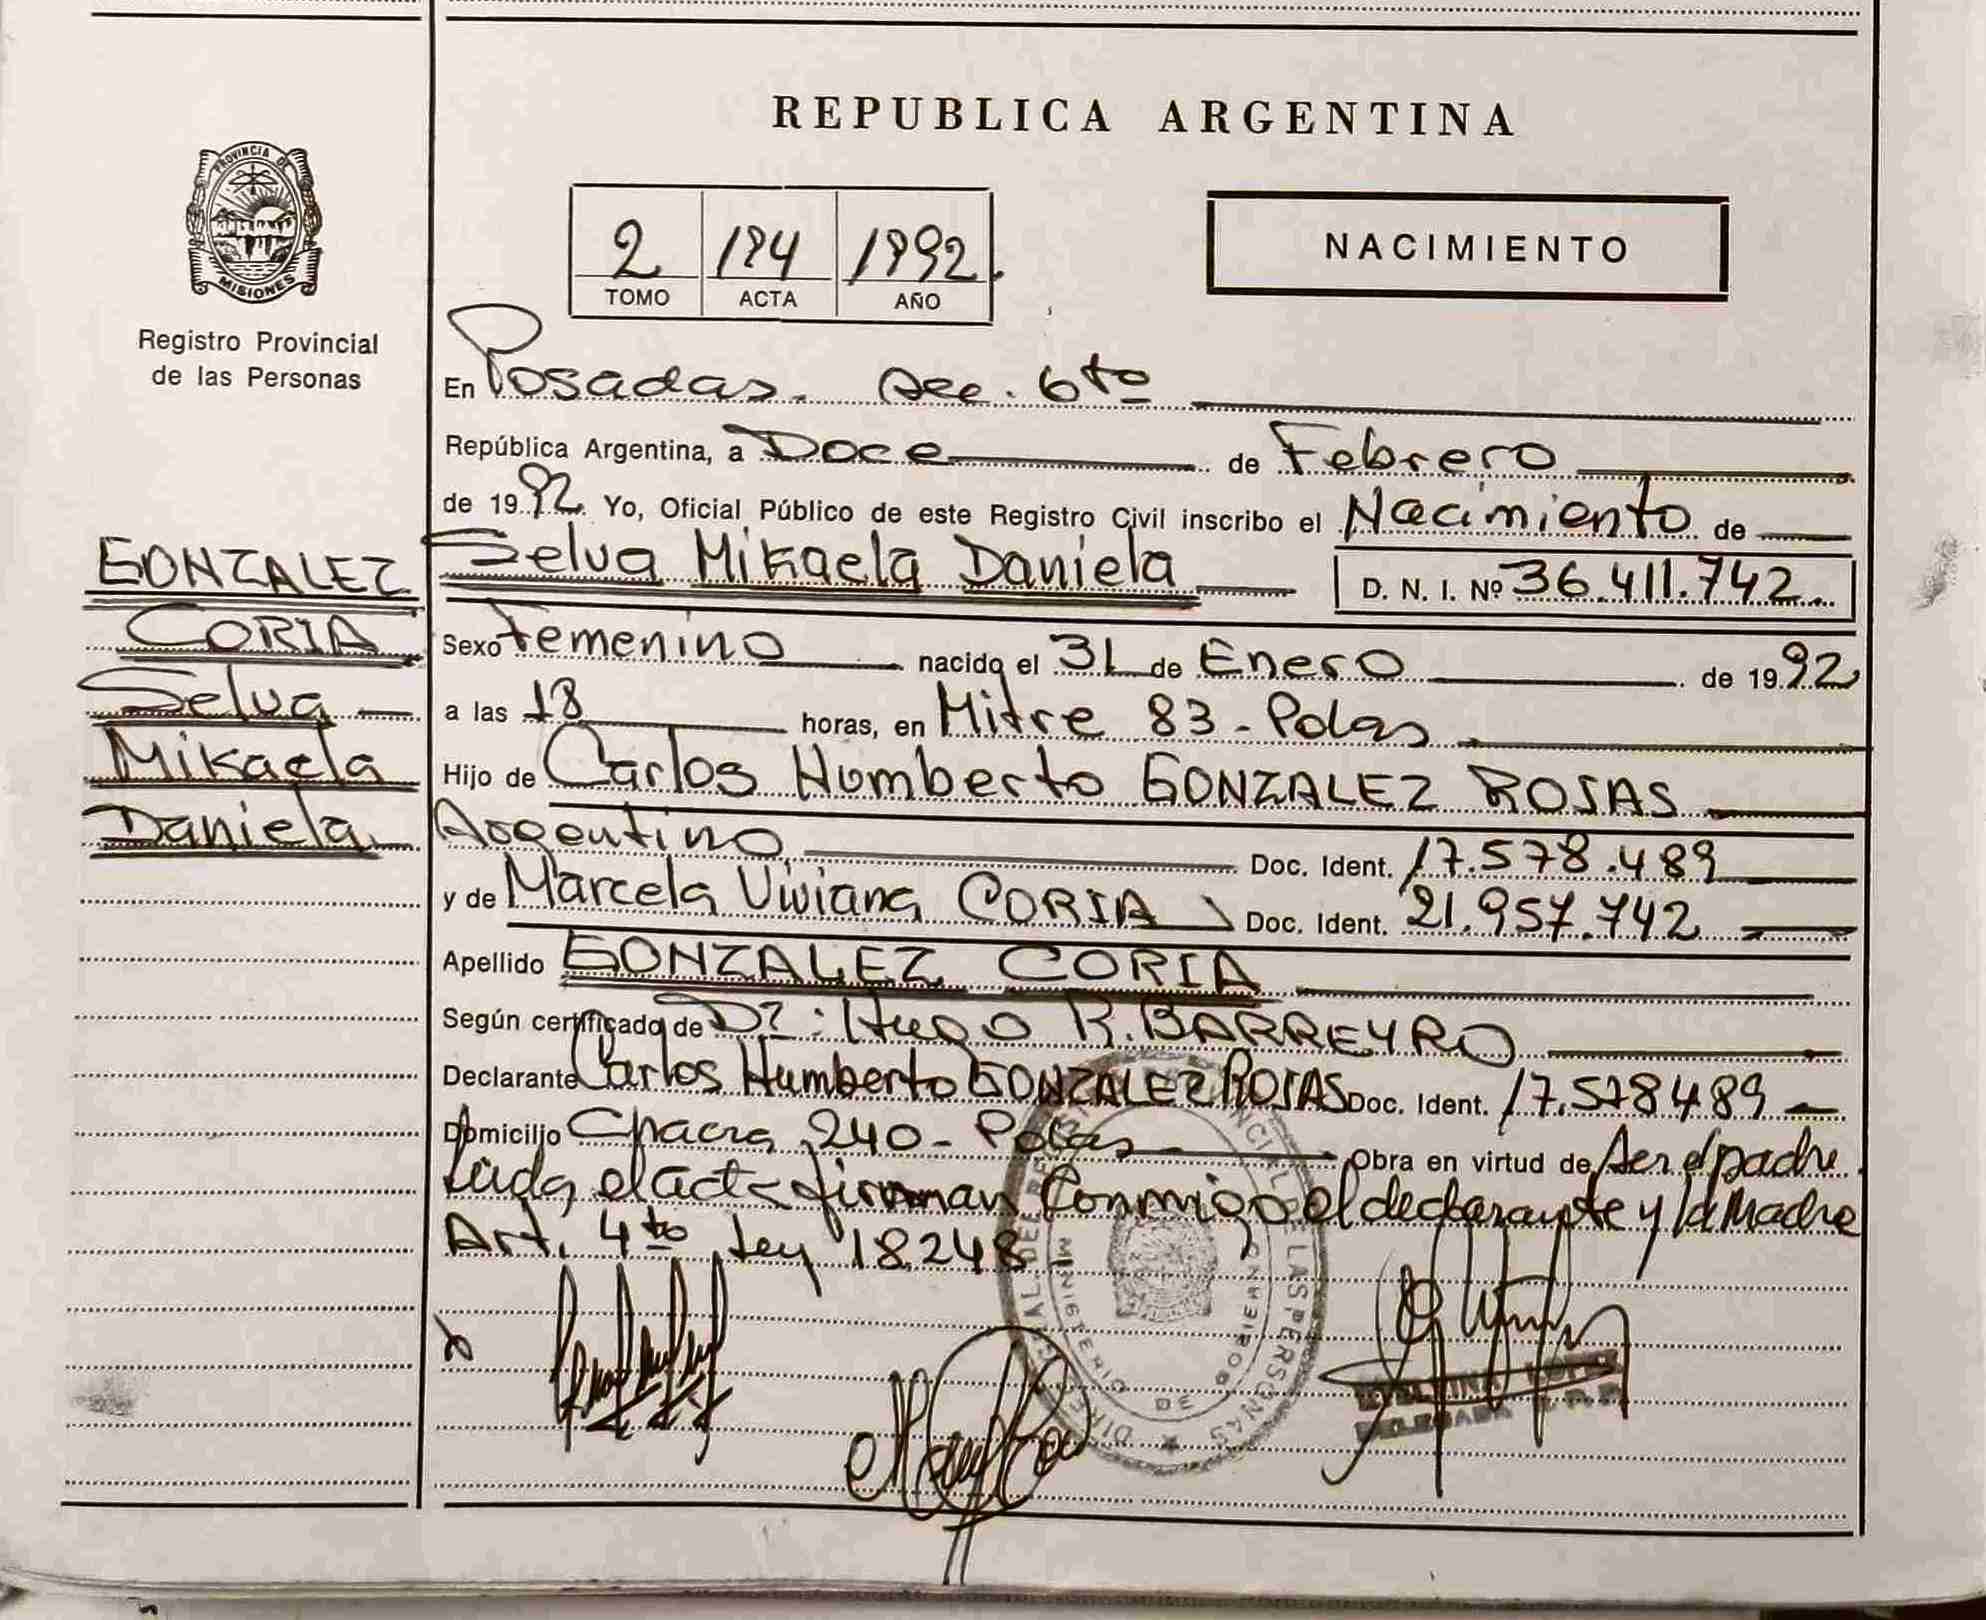 REPUBLICA ARGENTINA
PROVINCIA DE MISIONES
Registro Provincial
de las Personas
2 194 1992
TOMO ACTA AÑO
NACIMIENTO
En Posadas. Sec. 6to
República Argentina, a Doce de Febrero
de 1992 Yo, Oficial Público de este Registro Civil inscribo el Nacimiento de
Selva Mikaela Daniela D. N. I. Nº 36.411.742
GONZALEZ
CORIA
Selva
Mikaela
Daniela
Sexo Femenino nacido el 31 de Enero de 1992
a las 18 horas, en Mitre 83 - Pdas
Hijo de Carlos Humberto GONZALEZ ROSAS
Argentino Doc. Ident. 17.578.489
y de Marcela Viviana CORIA Doc. Ident. 21.957.742
Apellido GONZALEZ CORIA
Según certificado de Dr: Hugo R. BARREYRO
Declarante Carlos Humberto GONZALEZ ROSAS Doc. Ident. 17.578489
Domicilio Chacra 240 - Pdas Obra en virtud de ser el padre
Leída el acta firman conmigo el declarante y la Madre
Art. 4to Ley 18248
MINISTERIO DE GOBIERNO
LAS PERSONAS
DELEGADA